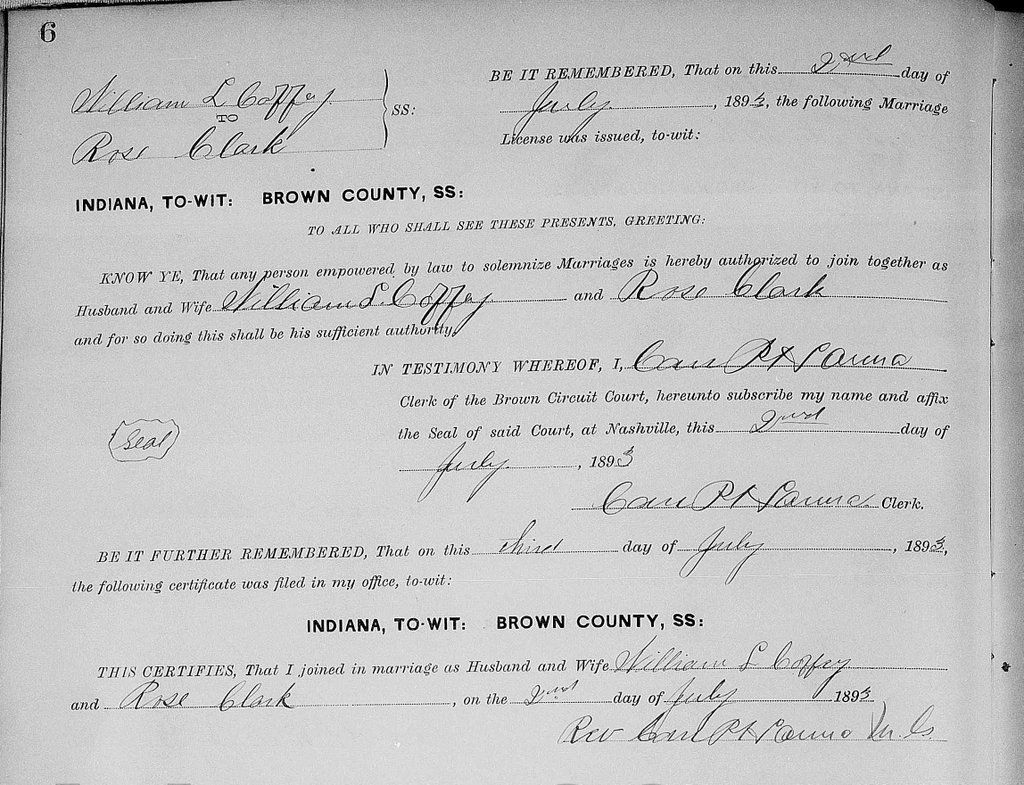 6
William L Coffey
TO
Rose Clark
SS:
BE IT REMEMBERED, That on this 2nd day of
July, 1893, the following Marriage
License was issued, to-wit:
INDIANA, TO-WIT: BROWN COUNTY, SS:
TO ALL WHO SHALL SEE THESE PRESENTS, GREETING:
KNOW YE, That any person empowered by law to solemnize Marriages is hereby authorized to join together as
Husband and Wife William L. Coffey and Rose Clark
and for so doing this shall be his sufficient authority.
IN TESTIMONY WHEREOF, I,
Clerk of the Brown Circuit Court, hereunto subscribe my name and affix
(Seal)
the Seal of said Court, at Nashville, this 2nd day of
July, 1893
Clerk.
BE IT FURTHER REMEMBERED, That on this third day of July, 1893,
the following certificate was filed in my office, to-wit:
INDIANA, TO-WIT: BROWN COUNTY, SS:
THIS CERTIFIES, That I joined in marriage as Husband and Wife William L Coffey
and Rose Clark, on the 2nd day of July 1893
Rev M. G.